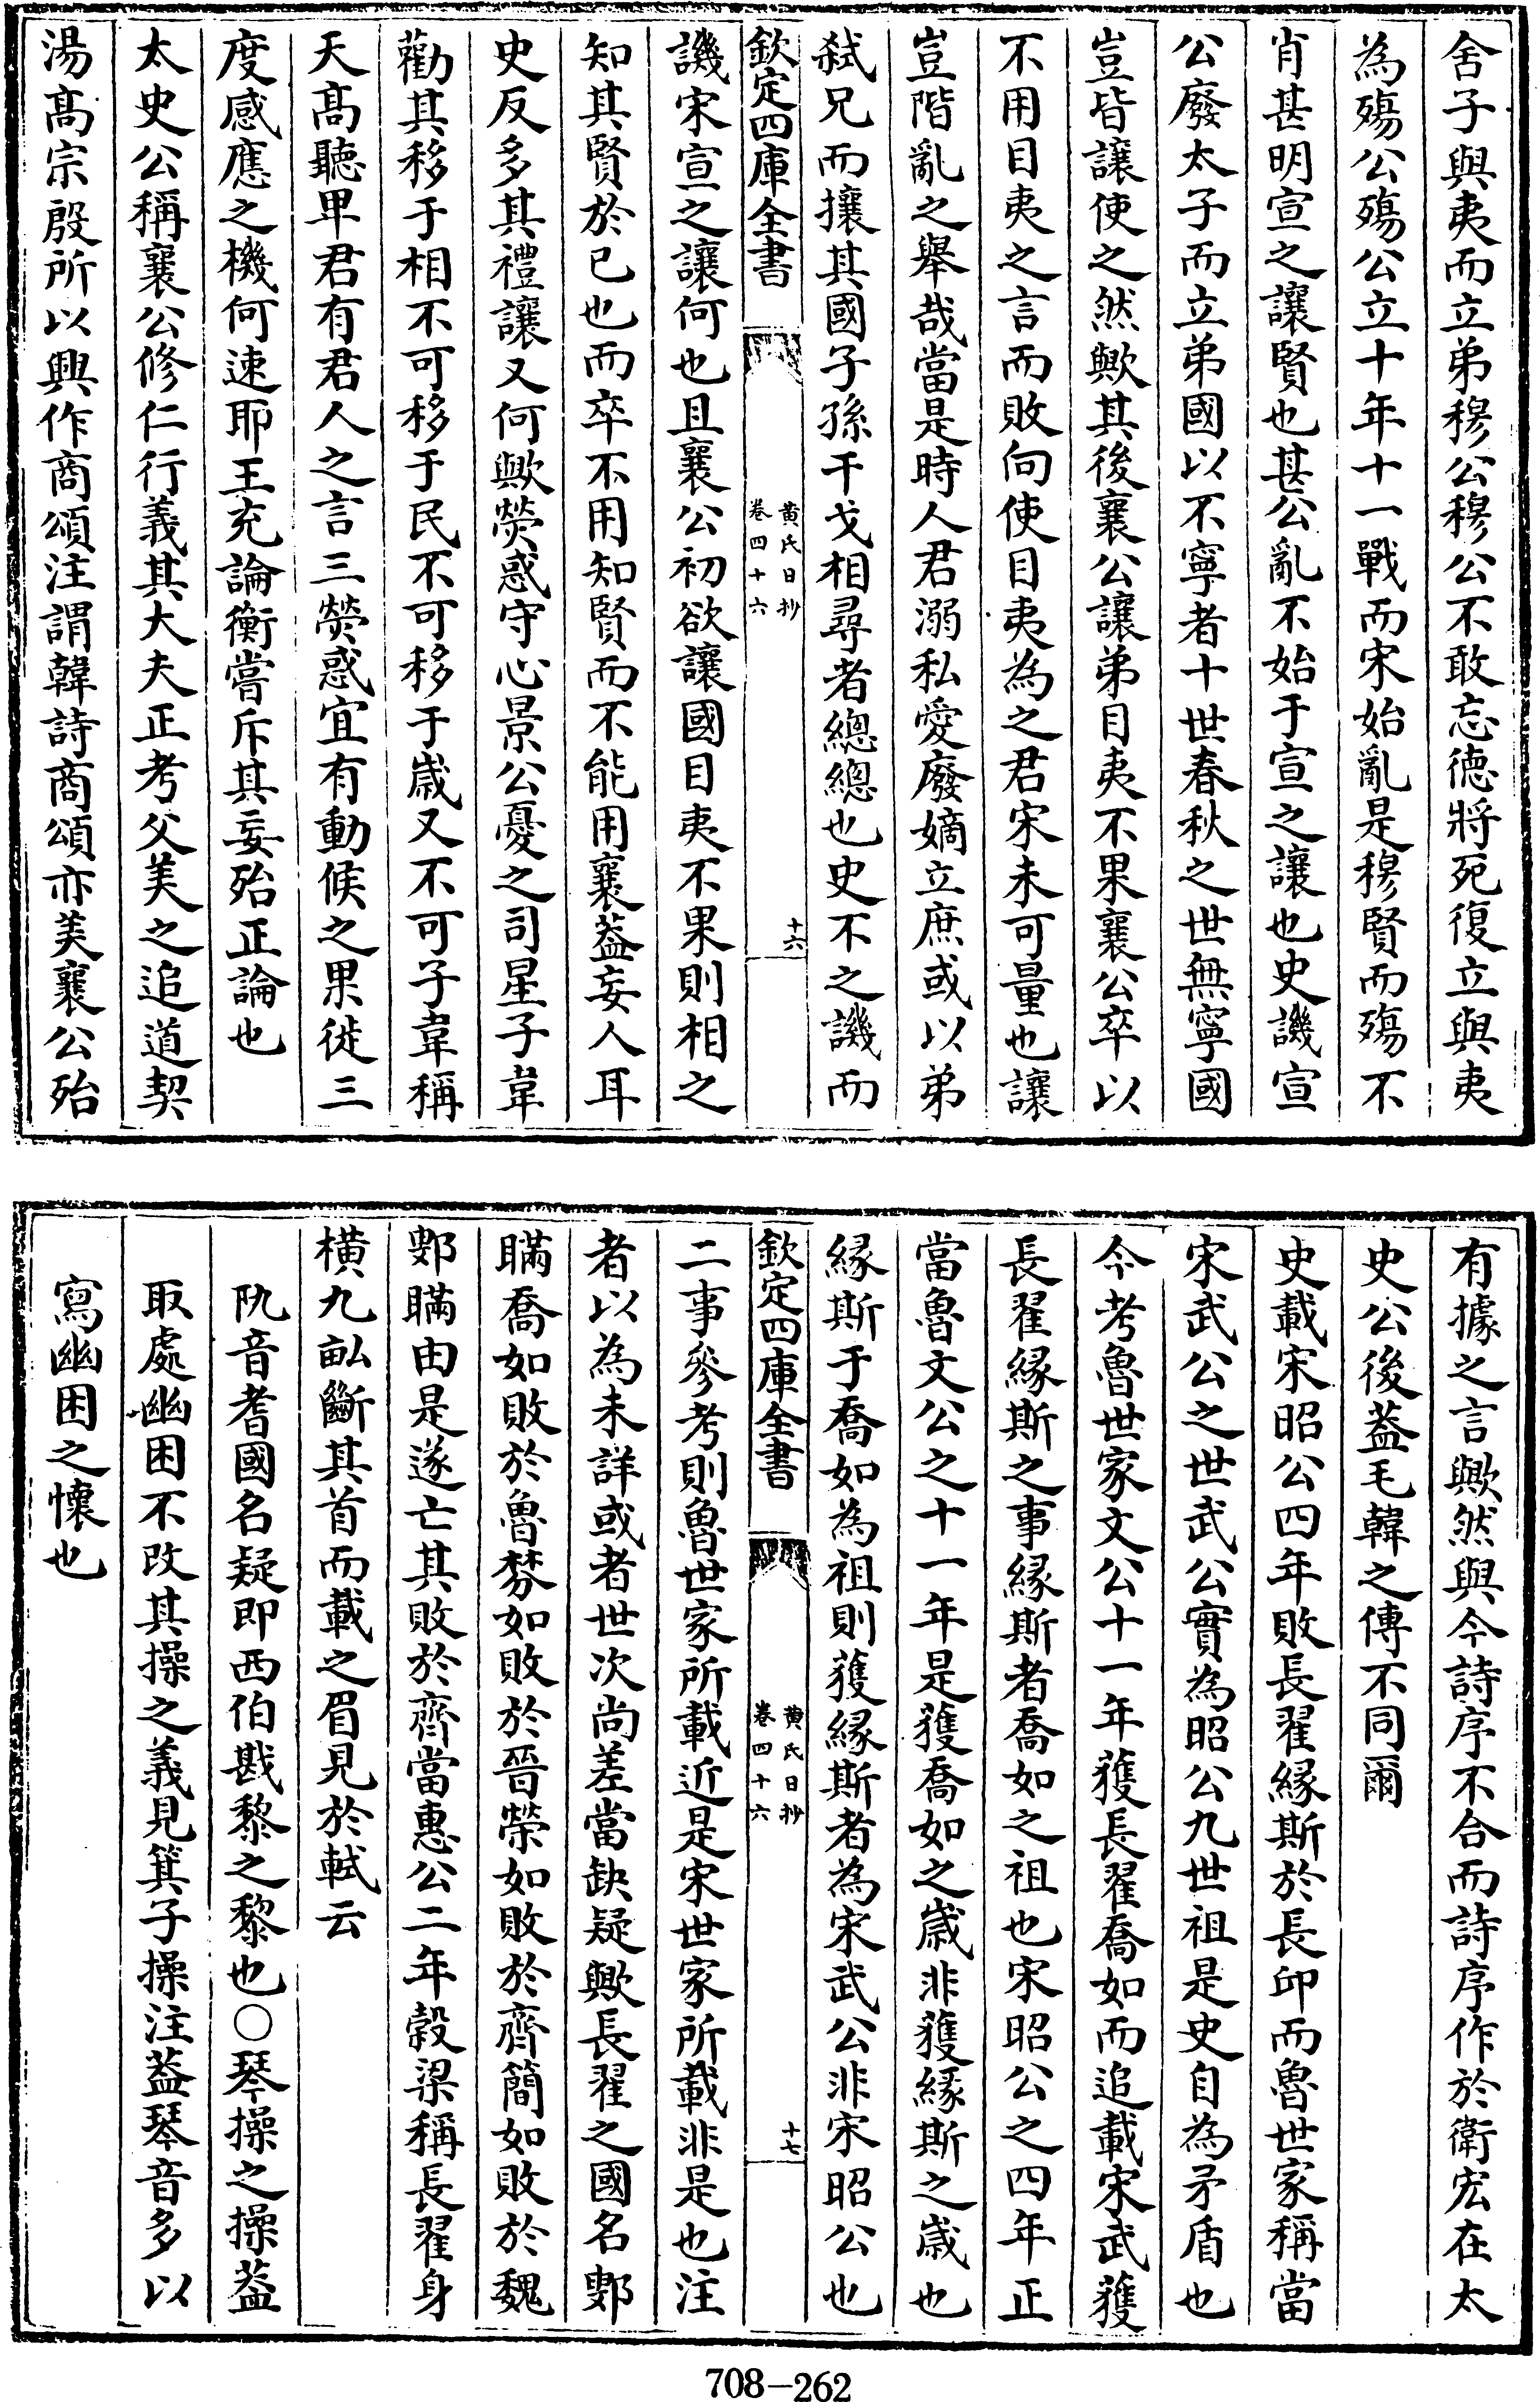 舍子與夷而立弟穆公穆公不敢忘德將死復立與夷
為殤公殤公立十年十一戰而宋始亂是穆賢而殤不
肖甚明宣之讓賢也甚公亂不始于宣之讓也史譏宣
公廢太子而立弟國以不寧者十世春秋之世無寧國
豈皆讓使之然歟其後襄公讓弟目夷不果襄公卒以
不用目夷之言而敗向使目夷為之君宋未可量也讓
豈階亂之舉哉當是時人君溺私愛廢嫡立庶或以弟
弑兄而攘其國子孫干戈相尋者總總也史不之譏而
欽定四庫全書
黃氏日抄
卷四十六
十六
譏宋宣之讓何也且襄公初欲讓國目夷不果則相之
知其賢於己也而卒不用知賢而不能用襄葢妄人耳
史反多其禮讓又何歟熒惑守心景公憂之司星子韋
勸其移于相不可移于民不可移于歲又不可子韋稱
天髙聽卑君有君人之言三熒惑宜有動候之果徙三
度感應之機何速耶王充論衡嘗斥其妄殆正論也
太史公稱襄公修仁行義其大夫正考父美之追道契
湯髙宗殷所以興作商頌注謂韓詩商頌亦美襄公殆
有據之言歟然與今詩序不合而詩序作於衛宏在太
史公後葢毛韓之傳不同爾
史載宋昭公四年敗長翟緣斯於長邱而魯世家稱當
宋武公之世武公實為昭公九世祖是史自為矛盾也
今考魯世家文公十一年獲長翟喬如而追載宋武獲
長翟緣斯之事緣斯者喬如之祖也宋昭公之四年正
當魯文公之十一年是獲喬如之歲非獲緣斯之歲也
緣斯于喬如為祖則獲緣斯者為宋武公非宋昭公也
欽定四庫全書
黃氏日抄
卷四十六
十七
二事參考則魯世家所載近是宋世家所載非是也注
者以為未詳或者世次尚差當缺疑歟長翟之國名鄋
瞞喬如敗於魯棼如敗於晉榮如敗於齊簡如敗於魏
鄋瞞由是遂亡其敗於齊當惠公二年榖梁稱長翟身
橫九畝斷其首而載之眉見於軾云
阢音耆國名疑即西伯戡黎之黎也○琴操之操葢
取處幽困不改其操之義見箕子操注葢琴音多以
寫幽困之懷也
708-262